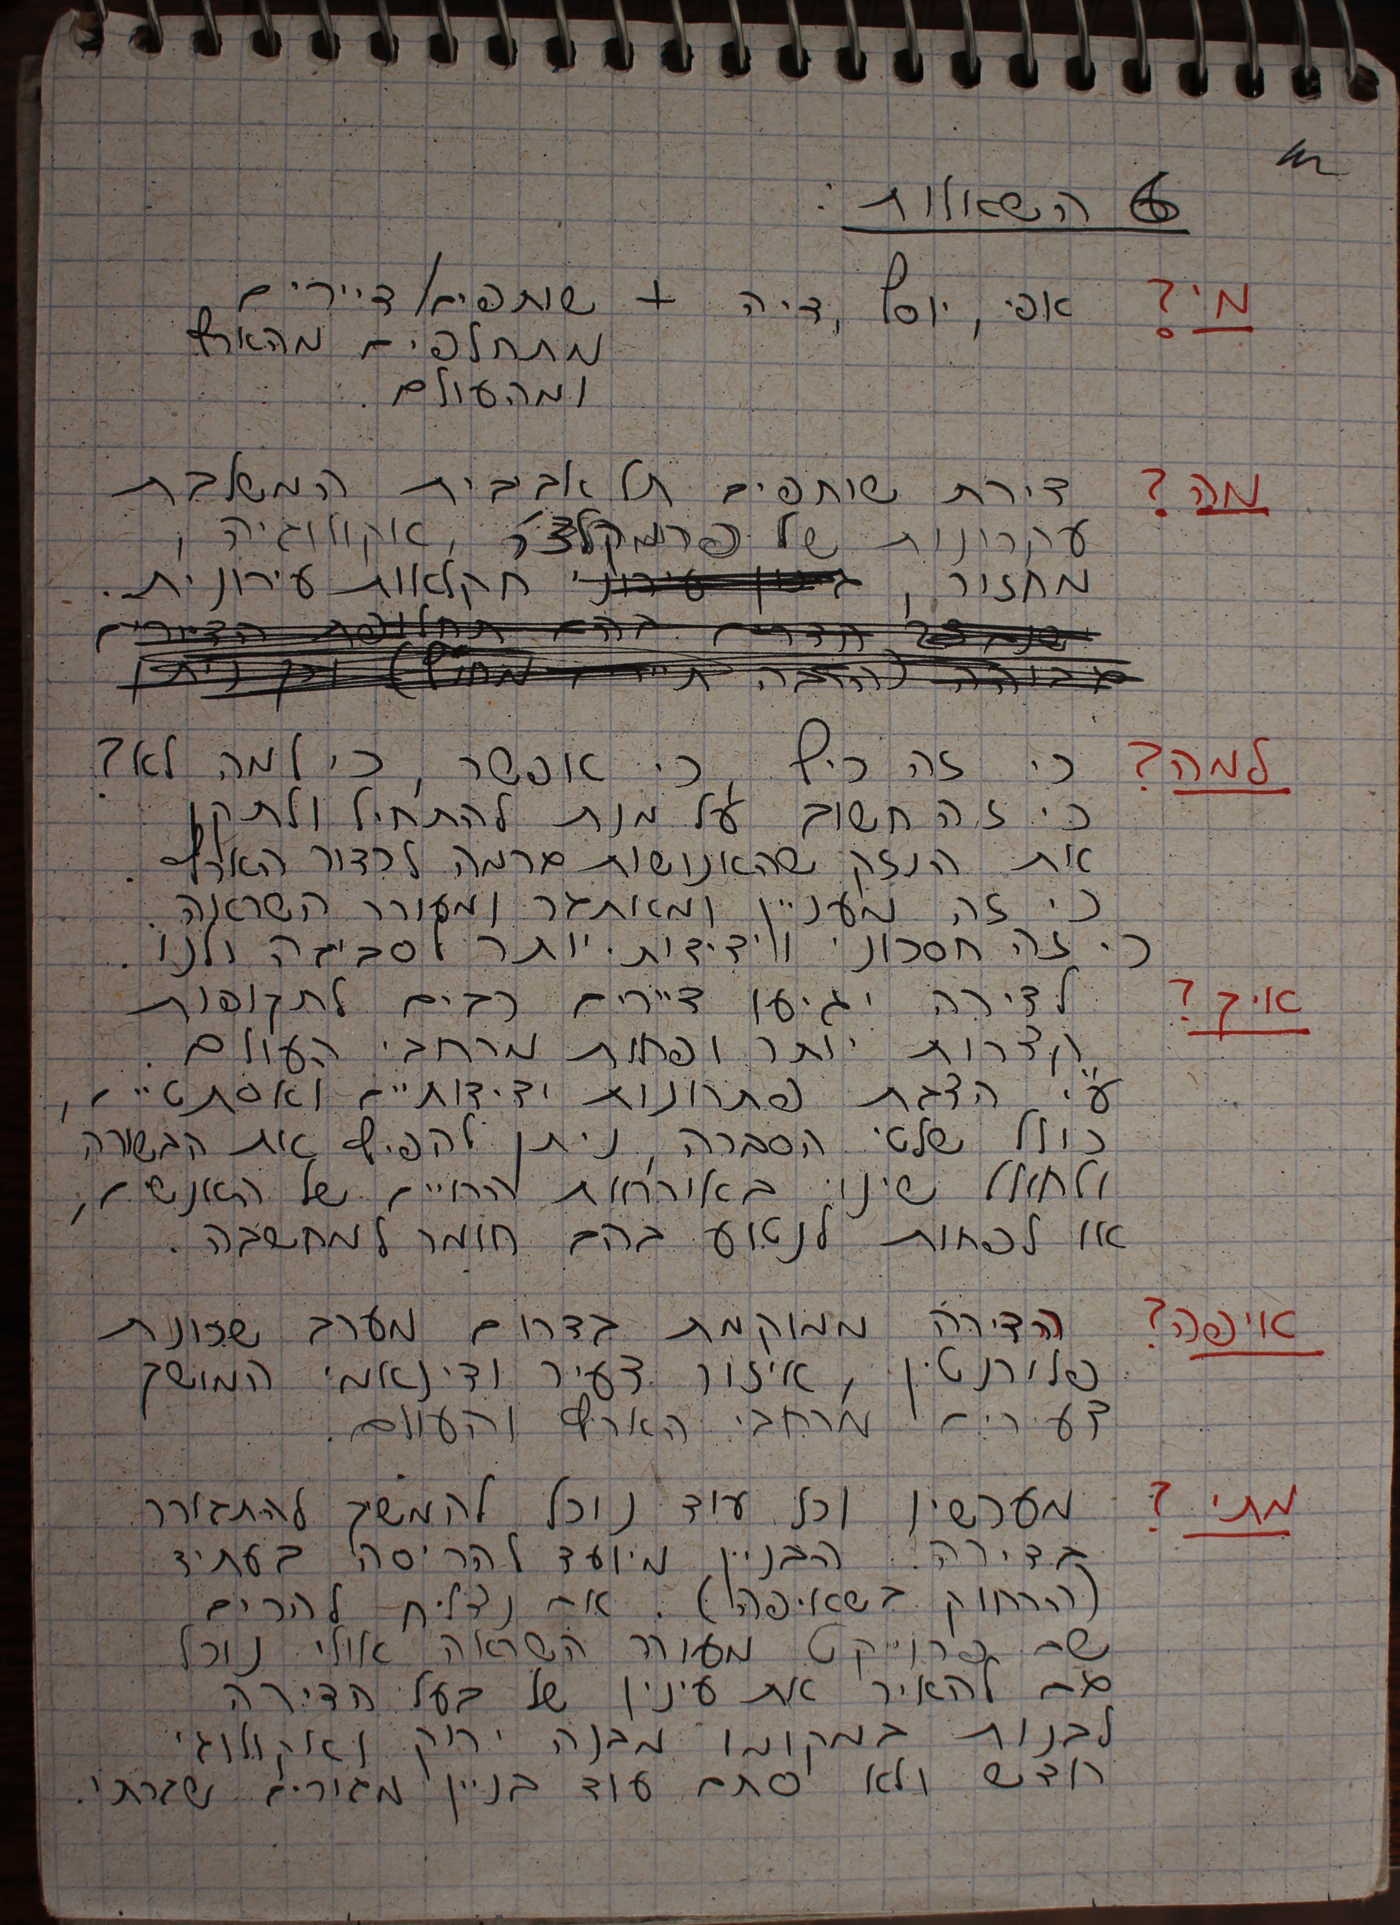 6 השאלות:
מי? אפי, יוסף, דיה + שותפים/דיירים
מתחלפים מהארץ
ומהעולם.
מה? דירת שותפים תל אביבית המשלבת
עקרונות של פרמקלצ'ר, אקולוגיה,
מחזור, חקלאות עירונית.
הדרים בהם תחלופת הדיירים
גבוהה (הרבה מחו"ל) וכך ניתן
למה? כי זה כיף, כי אפשר, כי למה לא?
כי זה חשוב על מנת להתחיל ולתקן
את הנזק שהאנושות גרמה לכדור הארץ.
כי זה מעניין ומאתגר ומעורר השראה.
כי זה חסכוני וידידותי יותר לסביבה ולנו.
איך? לדירה יגיעו דיירים רבים לתקופות
קצרות יותר ופחות מרחבי העולם.
ע"י הצגת פתרונות ידידותיים ואסתטיים,
כולל שלטי הסברה, ניתן להפיץ את הבשורה
ולחולל שינוי באורחות החיים של האנשים,
או לפחות לנטוע בהם חומר למחשבה.
איפה? הדירה ממוקמת בדרום מערב שכונת
פלורנטין, איזור צעיר ודינאמי המושך
צעירים מרחבי הארץ והעולם.
מתי? מעכשיו וכל עוד נוכל להמשך להתגורר
בדירה. הבניין מיועד להריסה בעתיד
(הרחוק בשאיפה). אם נצליח להרים
שם פרוייקט מעורר השראה אולי נוכל
גם להאיר את עיניו של בעל הדירה
לבנות במקומו מבנה ירוק ואקולוגי
חדש ולא סתם עוד בניין מגורים שגרתי.